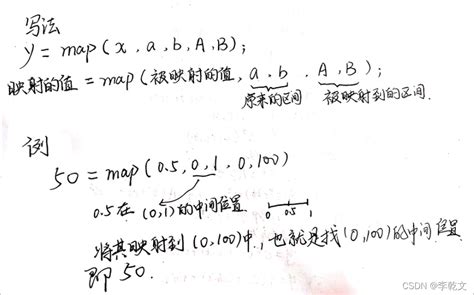 写法
y = map(x, a, b, A, B);
映射的值 = map(被映射的值, a, b, A, B);
原来的区间 被映射到的区间.
例
50 = map(0.5, 0, 1, 0, 100)
0.5在(0,1)的中间位置 0 0.5 1
将其映射到(0,100)中,也就是找(0,100)的中间位置
即50.
CSDN @李乾文